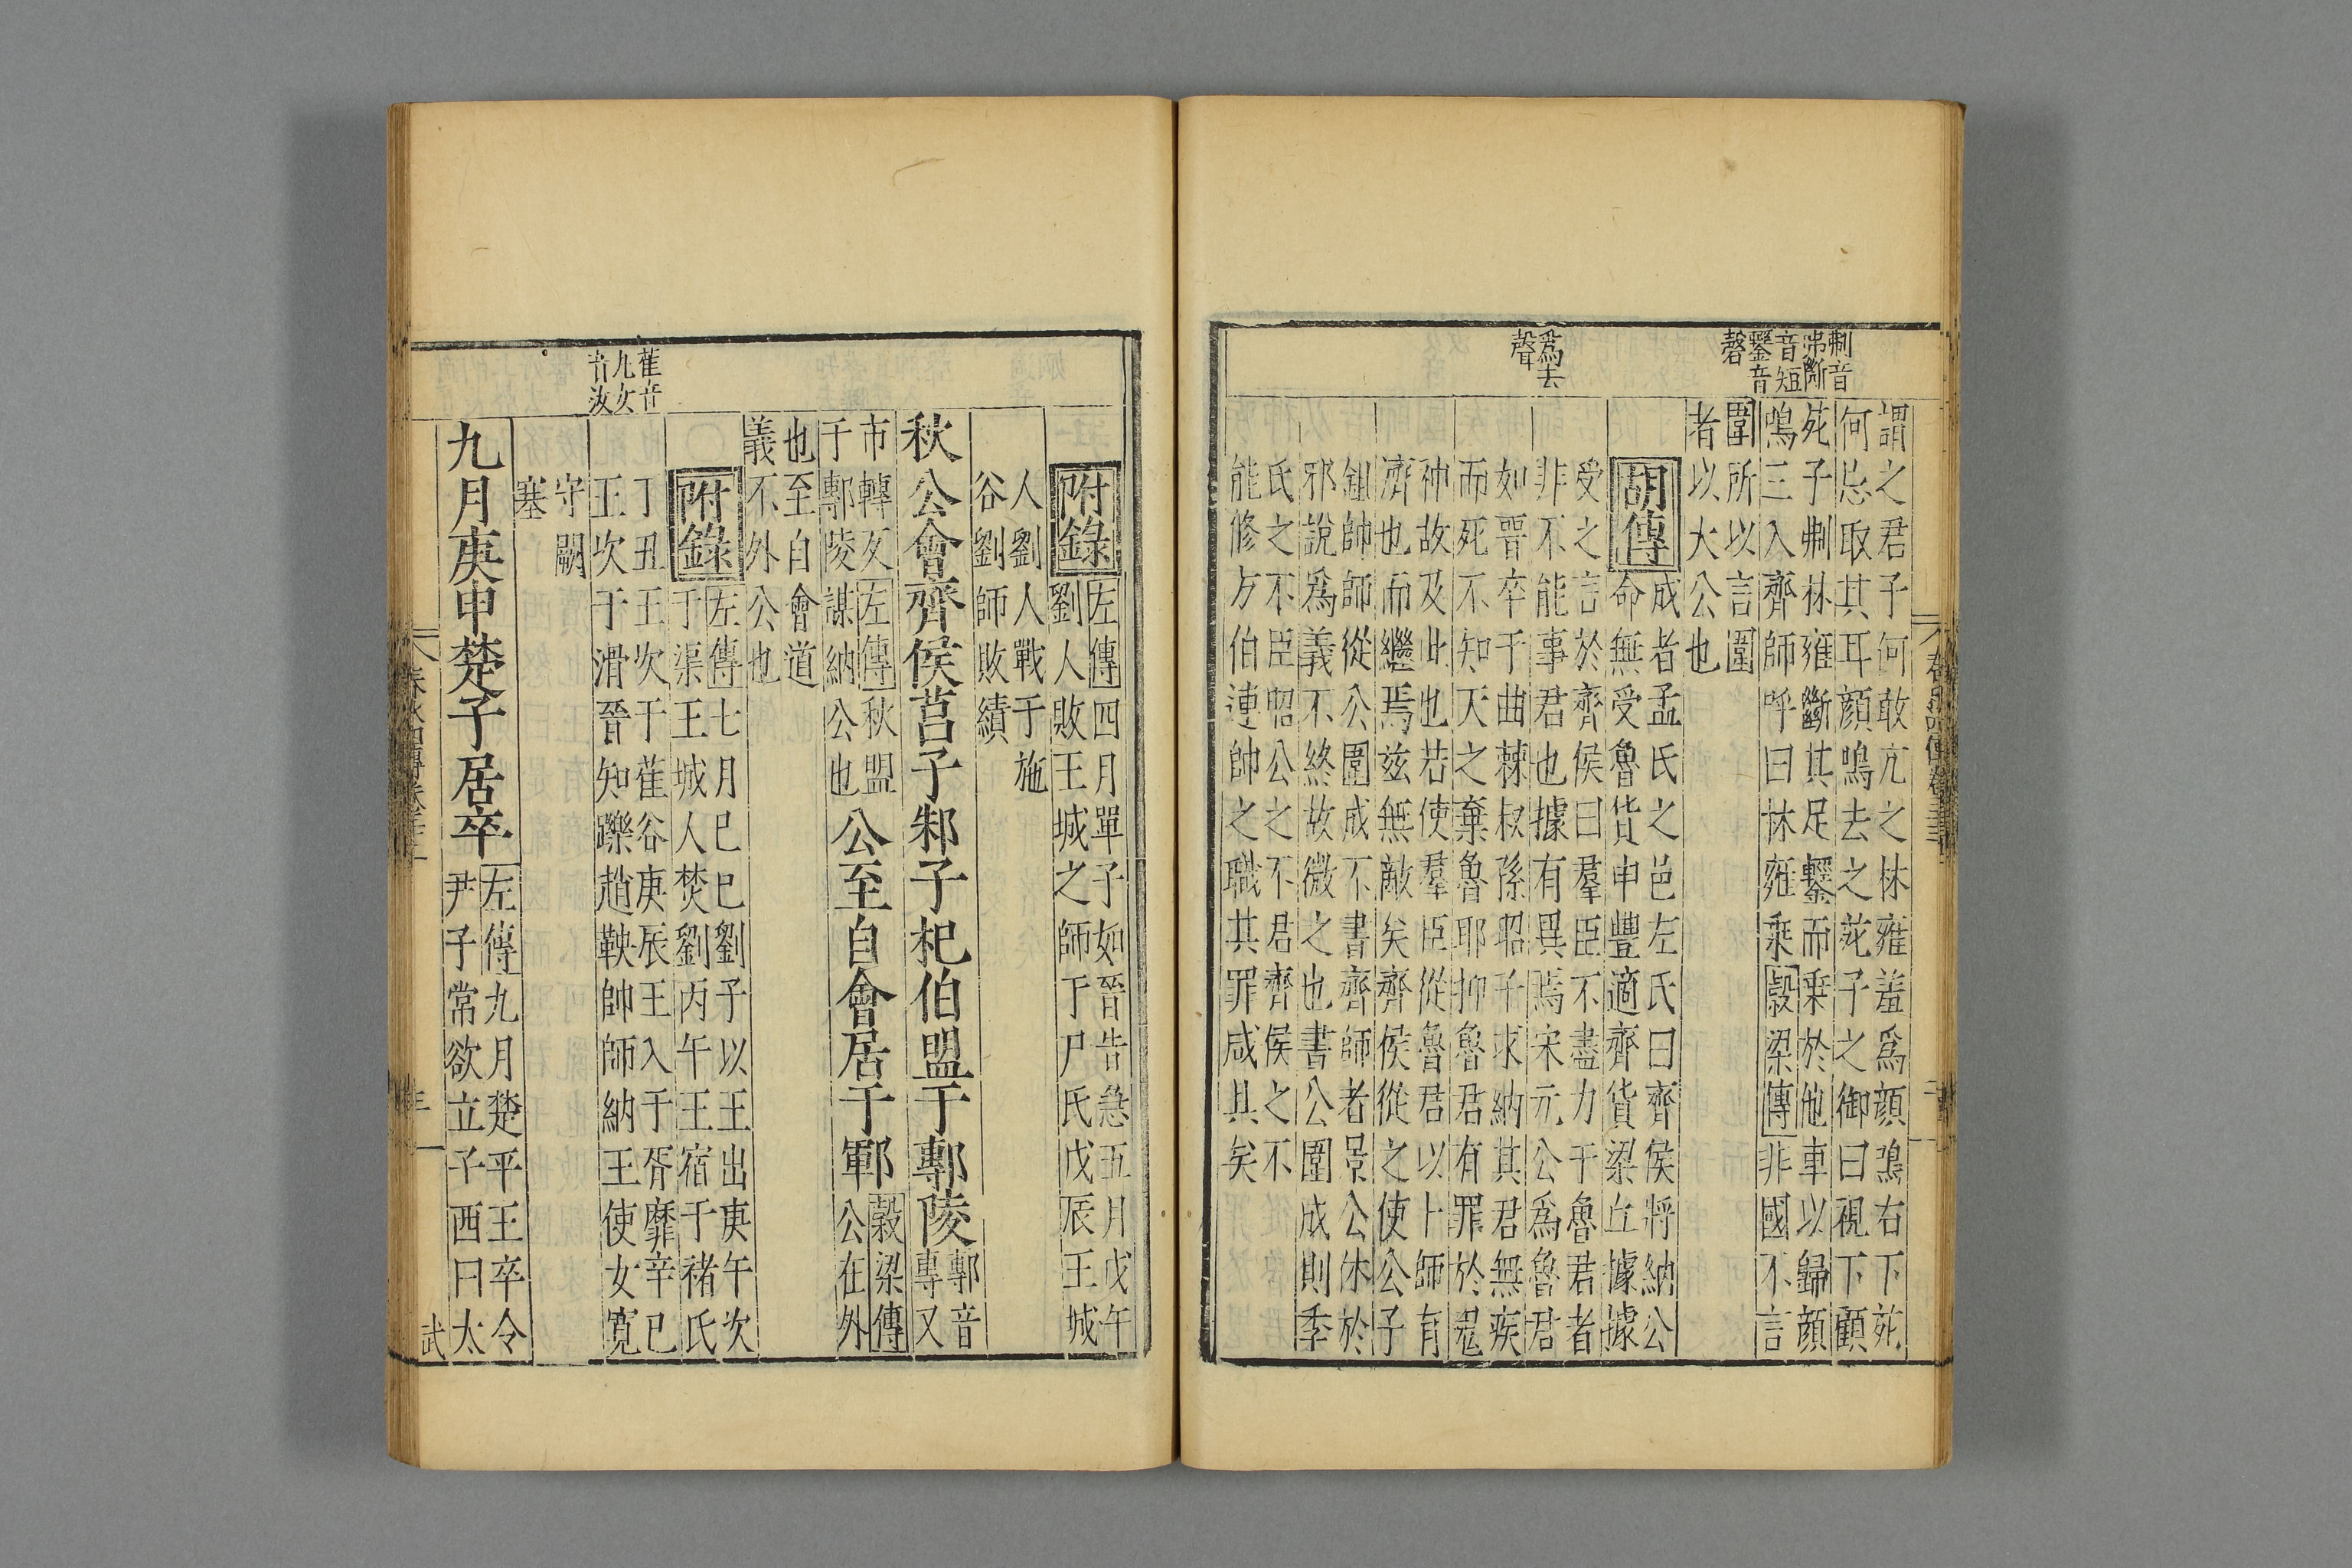 刜音
弗斷
音短
鑋音
磬
爲去
聲
謂之君子何敢亢之林雍羞爲顏鳴右下苑
何忌取其耳顏鳴去之苑子之御曰視下顧
苑子刜林雍斷其足鑋而乗於他車以歸顏
鳴三入齊師呼曰林雍乗穀梁傳非國不言
圍所以言圍
者以大公也
胡傳
成者孟氏之邑左氏曰齊侯將納公
命無受魯貨申豐適齊貨梁丘據據
受之言於齊侯曰羣臣不盡力于魯君者
非不能事君也據有異焉宋元公爲魯君
如晋卒于曲棘叔孫昭子求納其君無疾
而死不知天之棄魯耶抑魯君有罪於鬼
神故及此也若使羣臣從魯君以卜師有
濟也而繼焉玆無敵矣齊侯從之使公子
鉏帥師從公圍成不書齊師者景公怵於
邪說爲義不終故微之也書公圍成則季
氏之不臣昭公之不君齊侯之不
能修方伯連帥之職其罪咸具矣
萑音
九女
音汝
附錄
左傳四月單子如晉告急五月戊午
劉人敗王城之師于尸氏戊辰王城
人劉人戰于施
谷劉師敗績
秋公會齊侯莒子邾子杞伯盟于鄟陵
鄟音
專又
市轉反左傳秋盟
于鄟陵謀納公也
公至自會居于鄆
穀梁傳
公在外
也至自會道
義不外公也
附錄
左傳七月己巳劉子以王出庚午次
于渠王城人焚劉丙午王宿于褚氏
丁丑王次于萑谷庚辰王入于胥靡辛巳
王次于滑晉知躒趙鞅帥師納王使女寛
守關
塞
九月庚申楚子居卒
左傳九月楚平王卒令
尹子常欲立子西曰太
春秋四傳卷三十
三
武